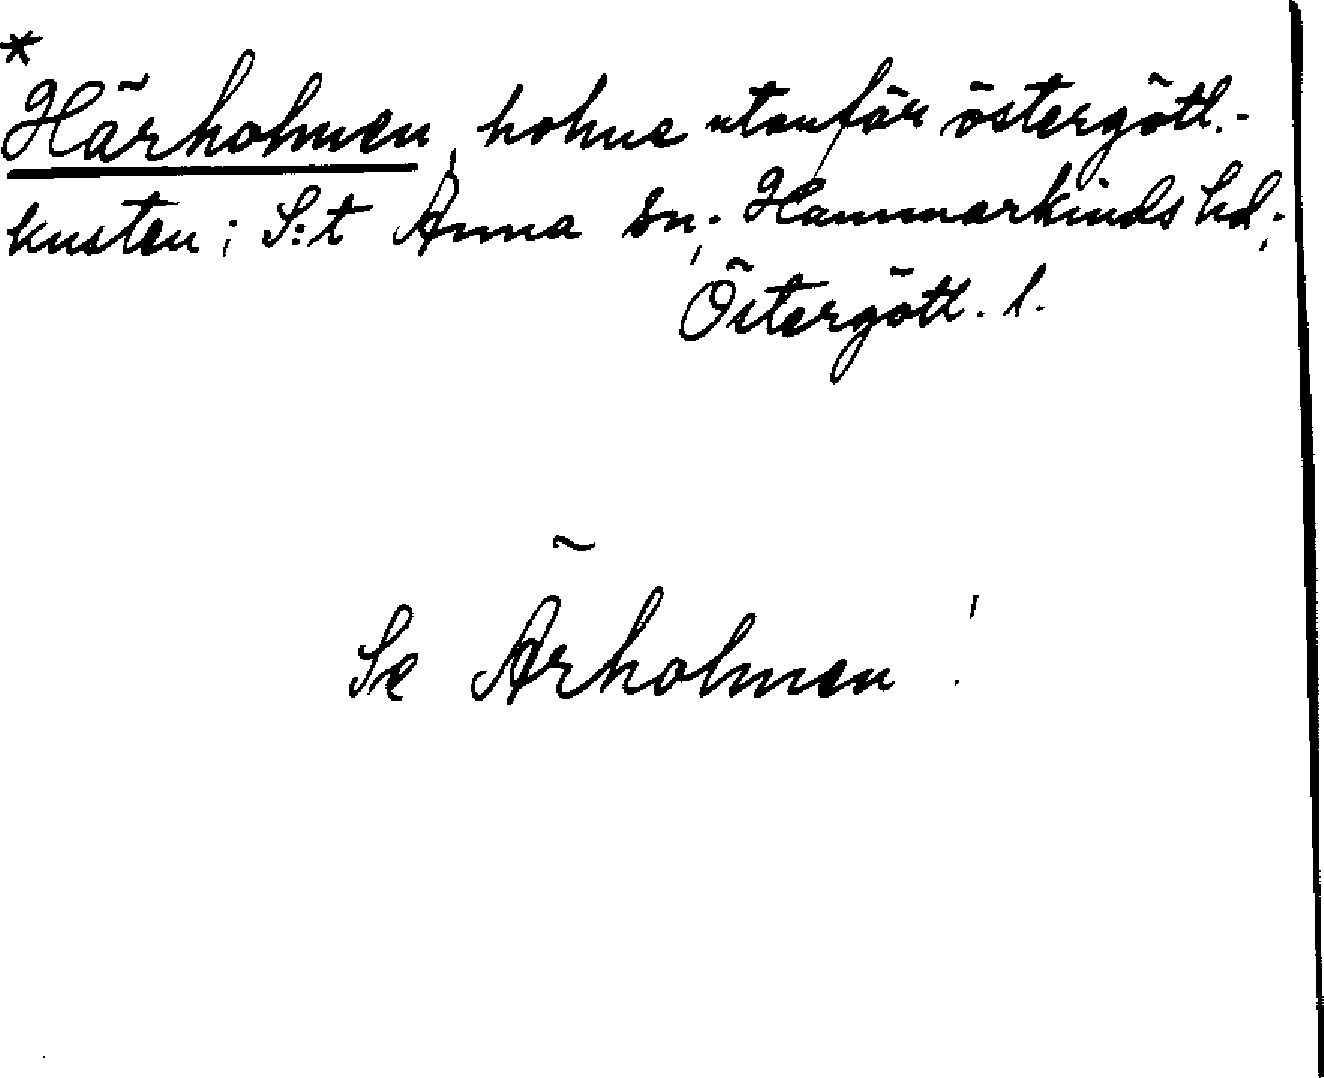 *
Härholmen, holme utanför östergötl.-
kusten; S:t Anna sn; Hammarkinds hd;
Östergötl. l.
Se Ärholmen!